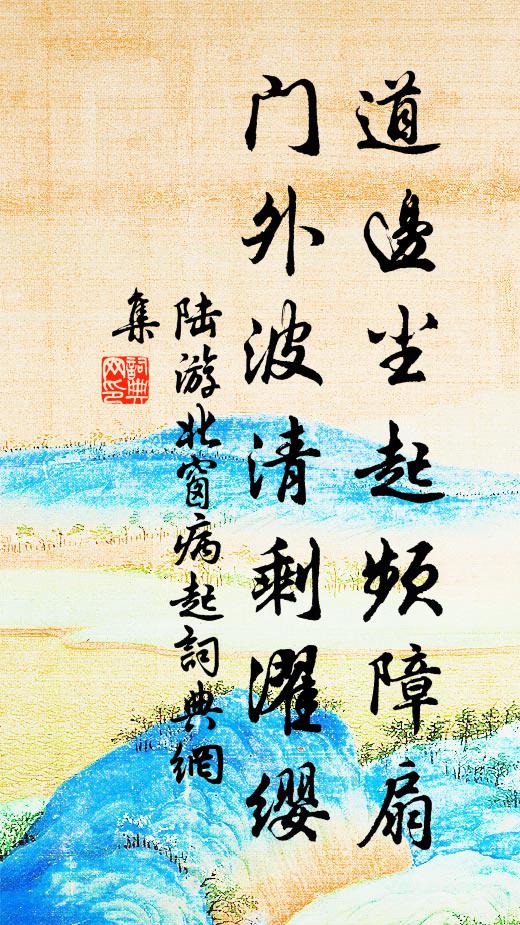 道邊尘起频障扇
门外波清剩濯缨
陆游北窗病起詞典網
集
詞典網印